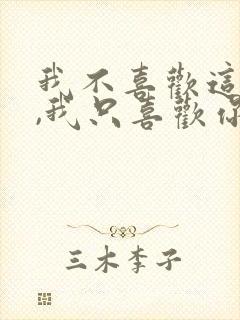 我不喜歡這
，我只喜歡你
三木李子